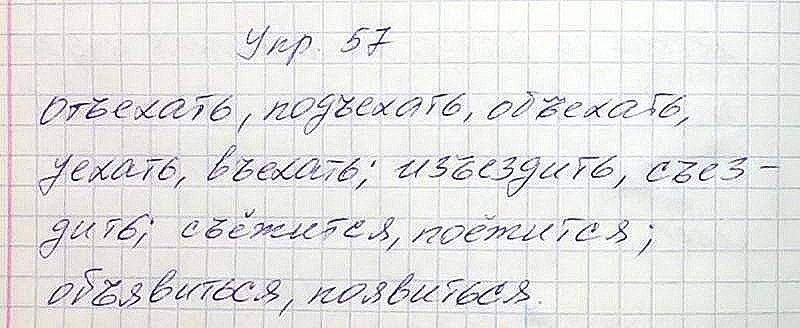 Упр. 57
отъехать, подъехать, объехать,
уехать, въехать; изъездить, съез-
дить; съёжится, поёжится;
объявиться, появиться.